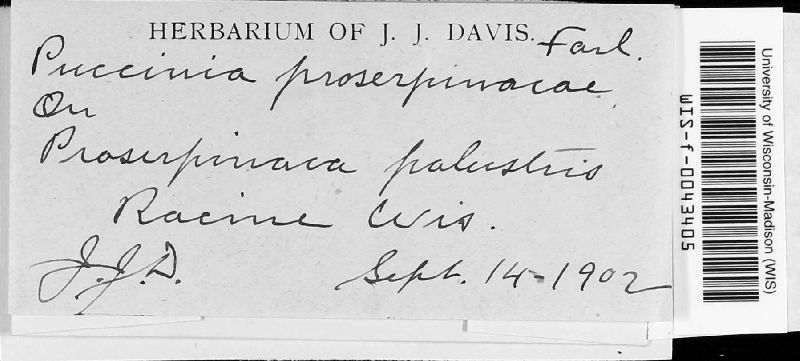 HERBARIUM OF J. J. DAVIS.
Puccinia proserpinacae Farl.
On
Proserpinaca palustris
Racine Wis.
J.J.D. Sept. 14-1902
University of Wisconsin-Madison (WIS)
WIS-f-0043405